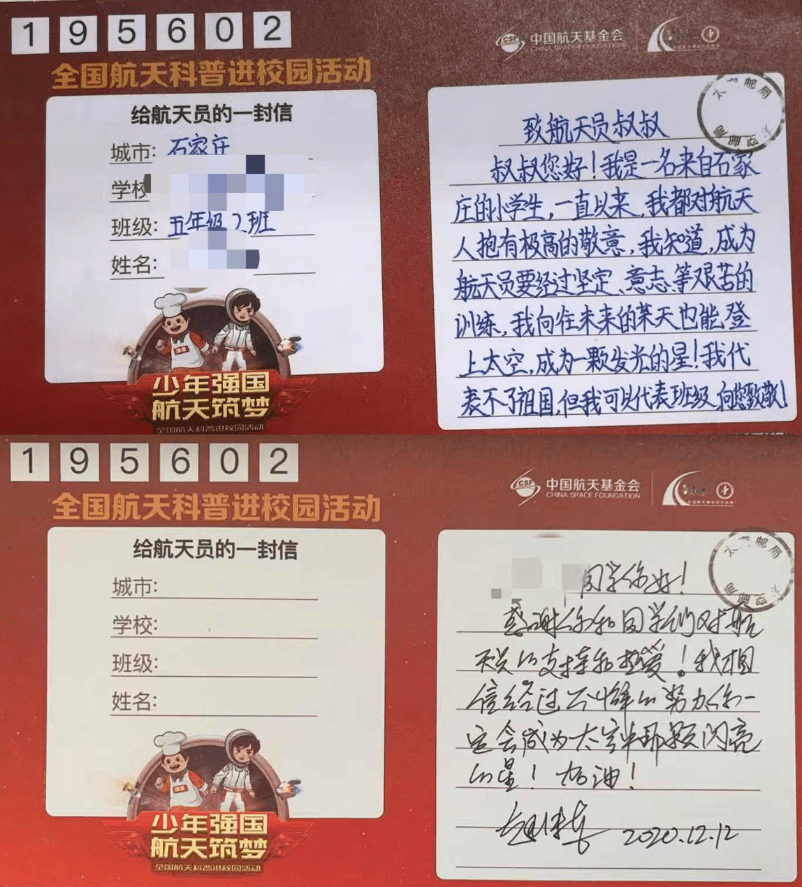 195602
全国航天科普进校园活动
给航天员的一封信
城市: 石家庄
学校
班级: 五年级2班
姓名:
少年强国
航天筑梦
全国航天科普进校园活动
中国航天基金会
CHINA SPACE FOUNDATION
致航天员叔叔
叔叔您好!我是一名来自石家
庄的小学生,一直以来,我都对航天
人抱有极高的敬意,我知道,成为
航天员要经过坚定、意志、等艰苦的
训练,我向往未来的某天也能登
上太空,成为一颗发光的星!我代
表不了祖国,但我可以代表班级,向您致敬!
195602
全国航天科普进校园活动
给航天员的一封信
城市:
学校:
班级:
姓名:
少年强国
航天筑梦
全国航天科普进校园活动
中国航天基金会
CHINA SPACE FOUNDATION
同学你好!
感谢你和同学们对航
天员的支持和热爱!我相
信经过不懈的努力你一
定会成为太空中那颗闪亮
的星!加油!
2020.12.12